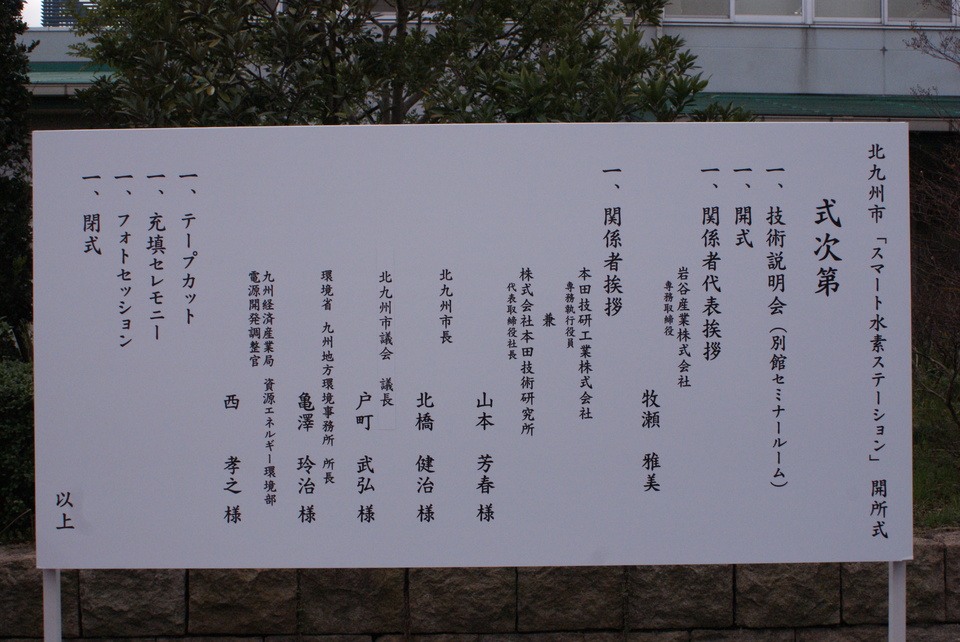 北九州市「スマート水素ステーション」 開所式
式次第
一、技術説明会(別館セミナールーム)
一、開式
一、関係者代表挨拶
岩谷産業株式会社
専務取締役
牧瀬 雅美
一、関係者挨拶
本田技研工業株式会社
専務執行役員
兼
株式会社本田技術研究所
代表取締役社長
山本 芳春 様
北九州市長
北橋 健治 様
北九州市議会 議長
戸町 武弘 様
環境省 九州地方環境事務所 所長
亀澤 玲治 様
九州経済産業局 資源エネルギー環境部
電源開発調整官
西 孝之 様
一、テープカット
一、充填セレモニー
一、フォトセッション
一、閉式
以上